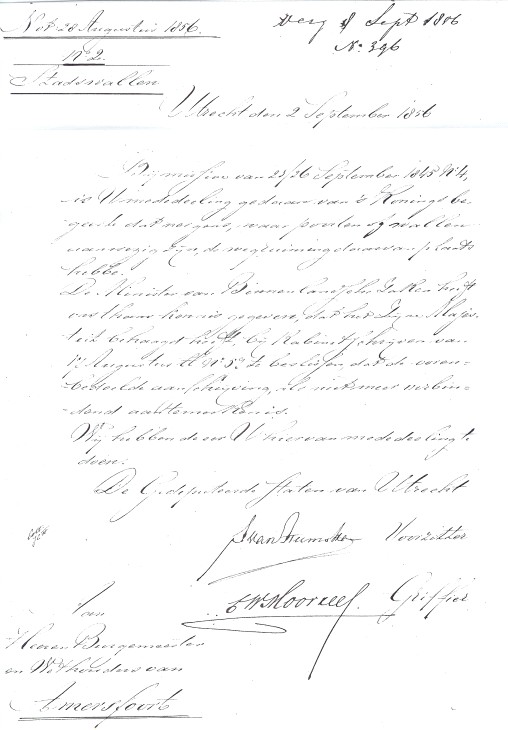 Not. 28 Augustus 1856.
No 2.
Stadswallen
Verg 8 Sept 1856
No. 396
Utrecht den 2 September 1856
Bij missive van 23/26 September 1845 No 4,
is U mededeeling gedaan van 's Konings be-
geerte dat nergens, waar poorten of wallen
aanwezig zijn, de wegruiming daarvan plaats
hebbe.
De Minister van Binnenlandsche Zaken heeft
ons thans kennis gegeven, dat het Zijne Majes-
teit behaagd heeft bij Kabinetschrijven van
Augustus te beslissen, dat de voren-
bedoelde aanschrijving, als niet meer verbin-
dend aan te merken is.
Wij hebben de eer U hiervan mededeeling te
doen.
De Gedeputeerde Staten van Utrecht
Voorzitter
Griffier
Aan
Heeren Burgemeester
en Wethouders van
Amersfoort